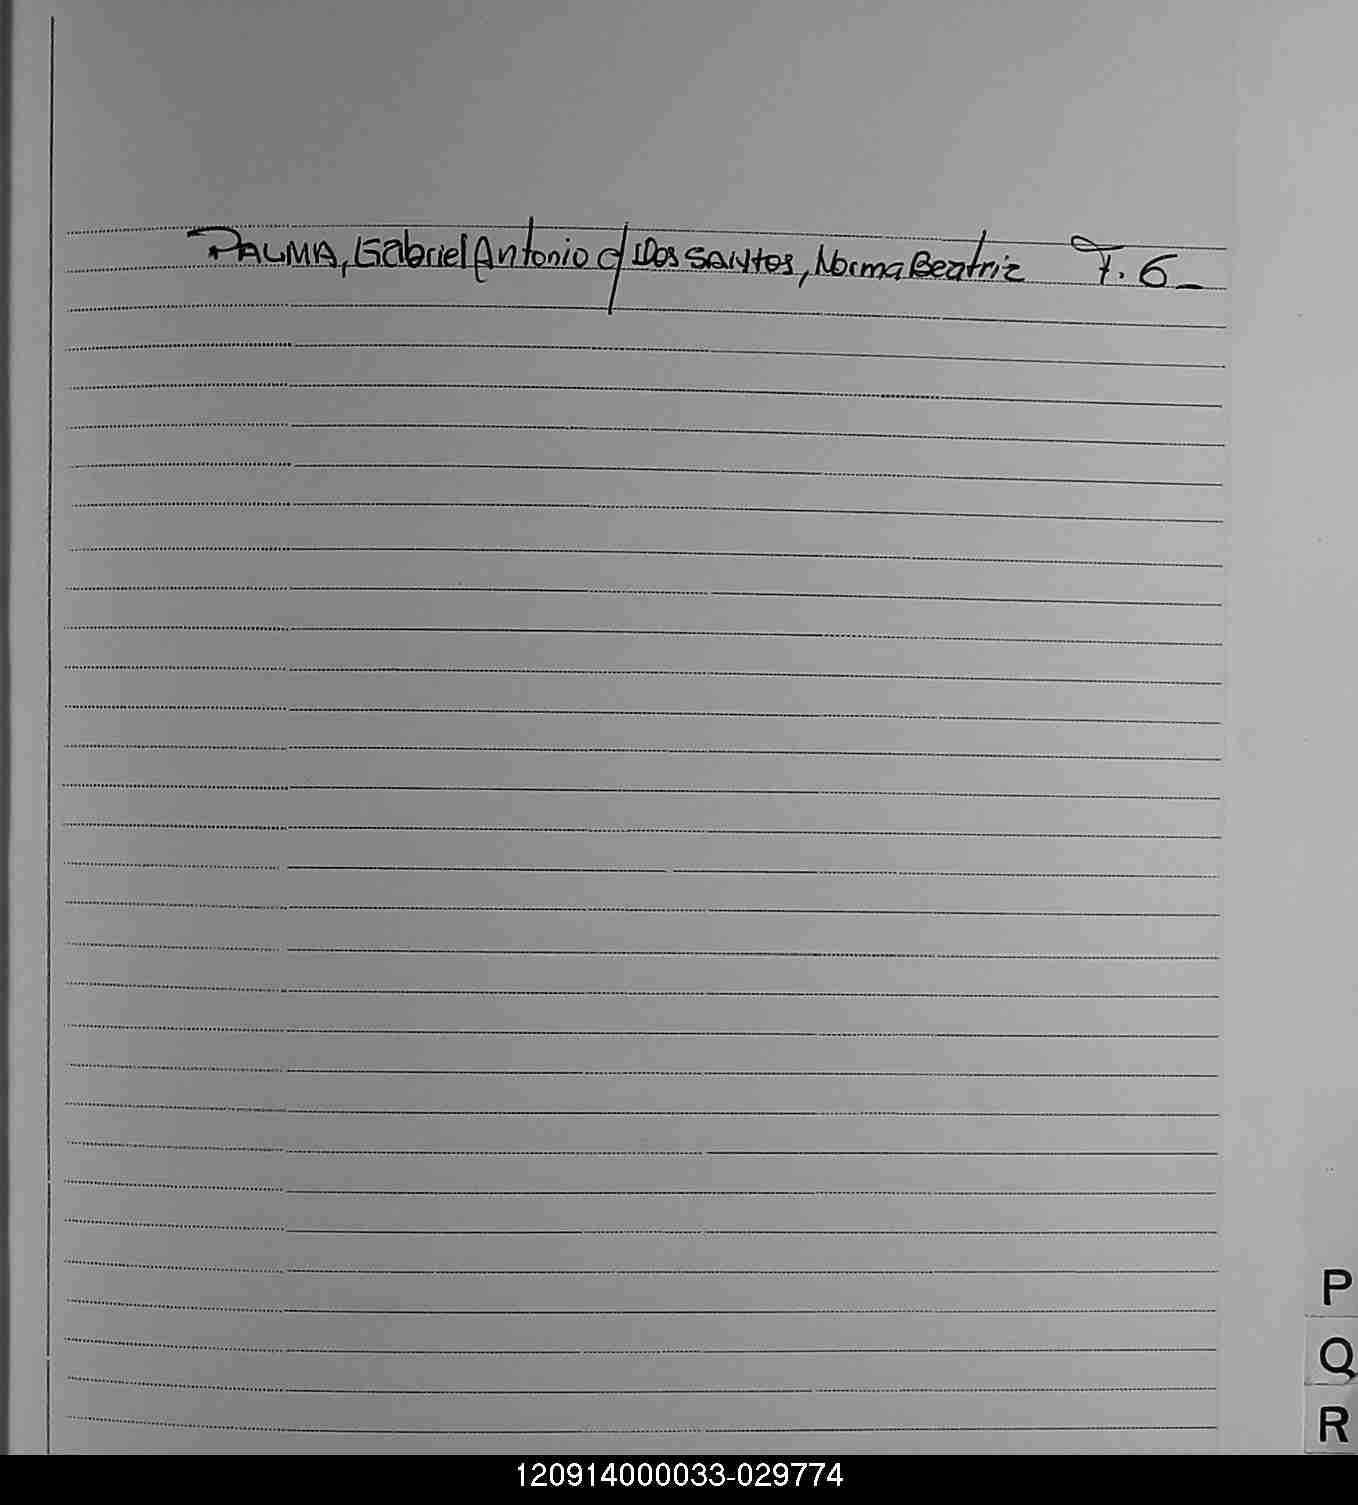 PALMA, Gabriel Antonio c/ Dos Santos, Norma Beatriz F. 6_
P
Q
R
120914000033-029774